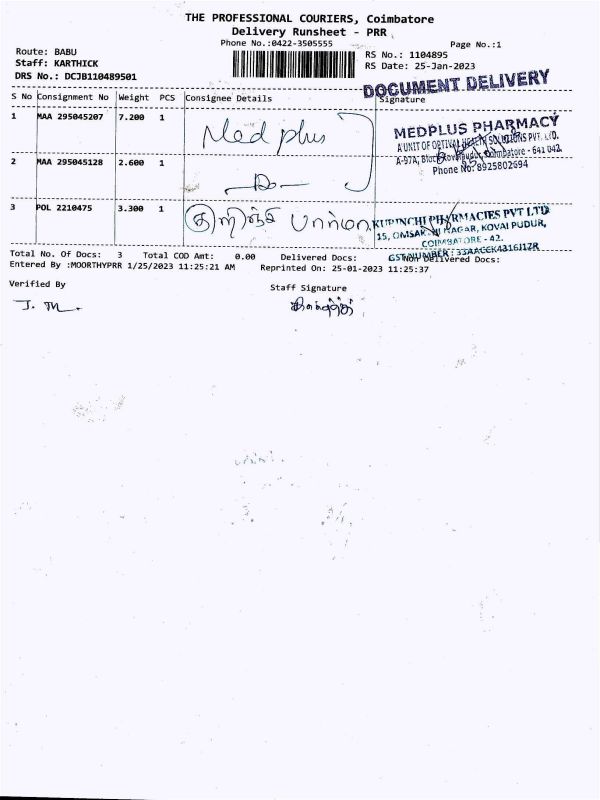 THE PROFESSIONAL COURIERS, Coimbatore
Delivery Runsheet - PRR
Phone No.:0422-3505555
Page No.:1
Route: BABU
RS No.: 1104895
Staff: KARTHICK
RS Date: 25-Jan-2023
DRS No.: DCJB110489501
DOCUMENT DELIVERY
S No Consignment No Weight PCS Consignee Details Signature
1 MAA 295045207 7.200 1 Med plus
MEDPLUS PHARMACY
A UNIT OF OPTIVAL HEALTH SOLUTIONS PVT. LTD.
Coimbatore - 641 042.
Phone No: 8925802694
2 MAA 295045128 2.600 1
3 POL 2210475 3.300 1 குறிஞ்சி பார்மா
KURINCHI PHARMACIES PVT LTD
NAGAR, KOVAI PUDUR,
COIMBATORE - 42.
GST NUMBER : 33AAGCK4316J1ZR
Total No. Of Docs: 3 Total COD Amt: 0.00 Delivered Docs: Non Delivered Docs:
Entered By :MOORTHYPRR 1/25/2023 11:25:21 AM Reprinted On: 25-01-2023 11:25:37
Verified By
Staff Signature